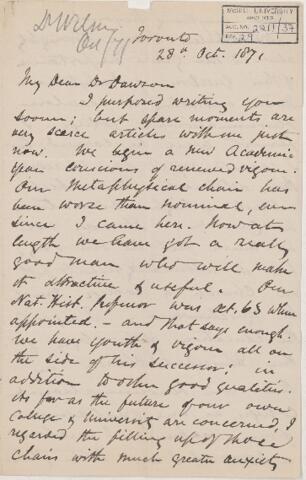 Dr Wilson
Oct /71
McGILL UNIVERSITY
ARCHIVES
ACC. NO. 2211/37
REF. 29
Toronto
28th Oct. 1871
My Dear Dr Dawson
I purposed writing you
sooner; but spare moments are
very scarce articles with me just
now. We begin a new Academic
year conscious of renewed vigour.
Our Metaphysical chair has
been worse than nominal, ever
since I came here. Now at
length we have got a really
good man who will make
it attractive & useful. Our
Nat. Hist. Professor was aet. 63 when
appointed. – and that says enough.
We have youth & vigour all on
the side of his successor: in
addition to other good qualities.
As far as the future of our own
College & University are concerned, I
regarded the filling up of those
chairs with much greater anxiety